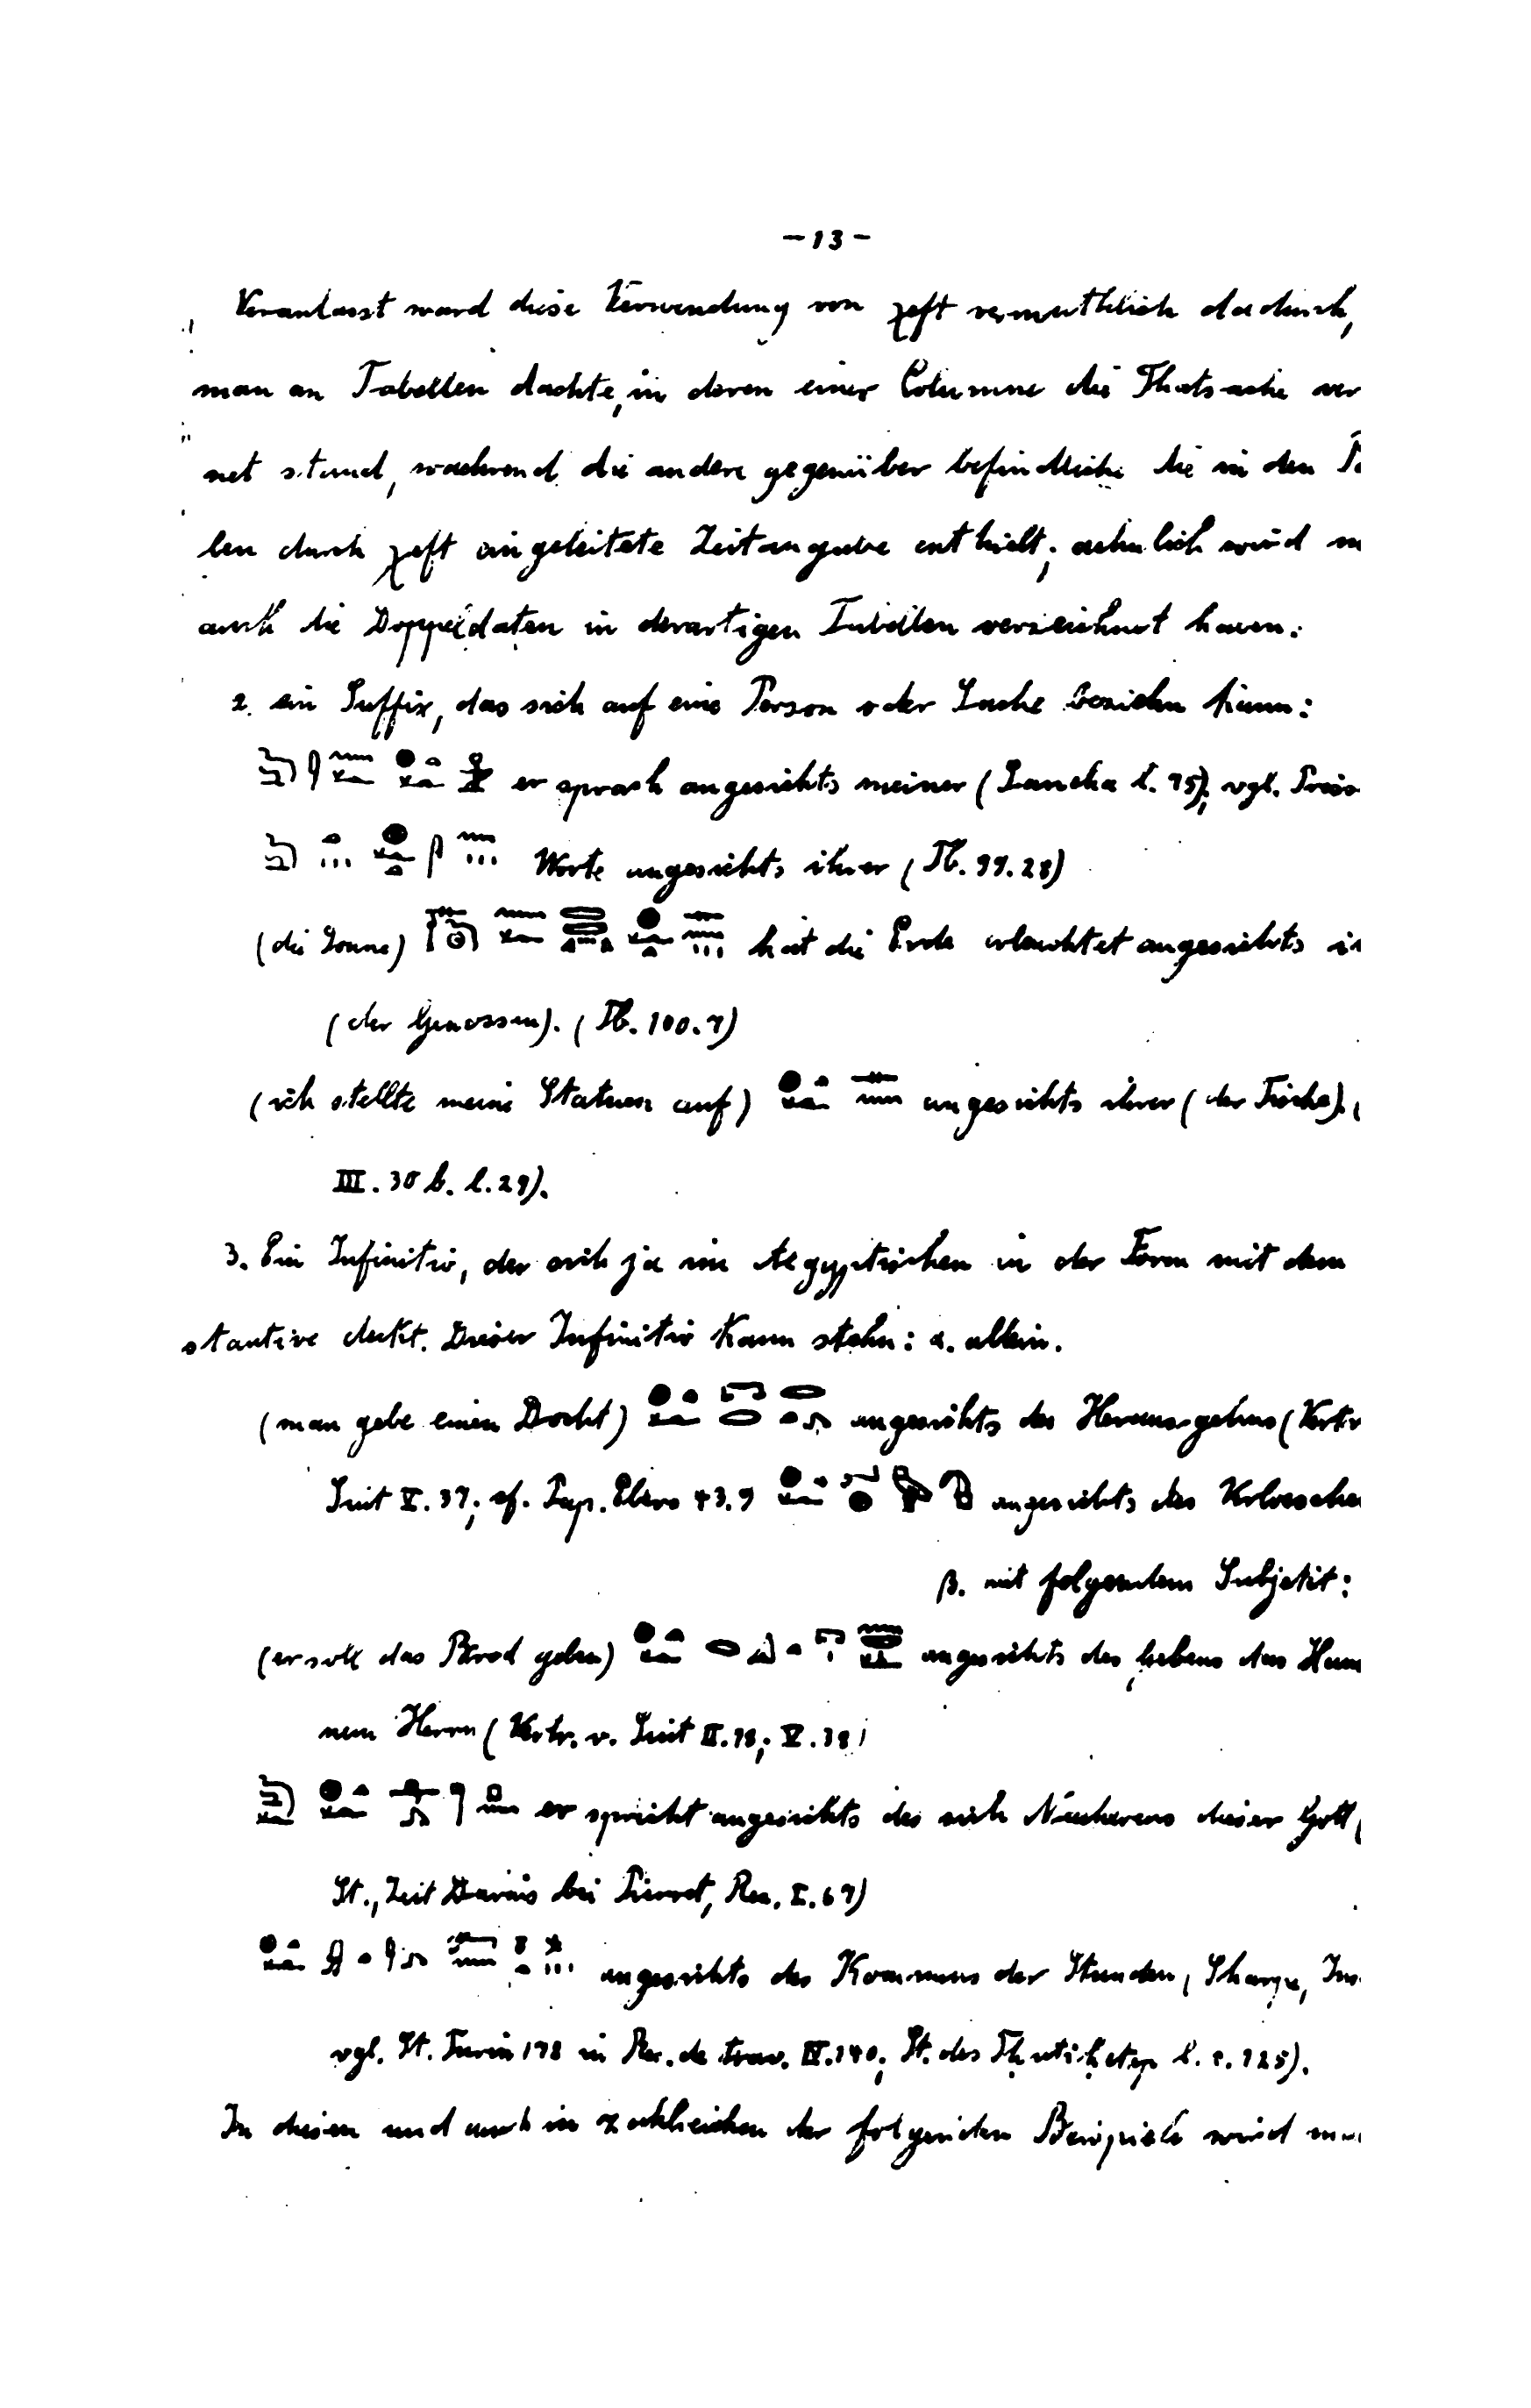 -13-
Veranlasst ward diese Verwendung von χeft vermuthlich dadurch,
man an Tabellen dachte, in deren einer Columne die Thatsache ver
net stand, waehrend die andere gegenüber befindliche die in den
len durch χeft eingeleitete Zeitangabe enthielt; aehnlich wird m
auch die Doppeldaten in derartigen Tabellen verzeichnet haben.
2. ein Suffix, das sich auf eine Person oder Sache beziehn kann:
er sprach angesichts meiner ( l. 75), vgl.
Worte angesichts ihrer (Tb. 99.28)
(die Sonne) hat die Erde erleuchtet angesichts
(der Genossen). (Tb. 100.7)
(ich stellte meine Statuen auf) angesichts ihrer (der Tische).
III. 30 b. l. 29).
3. Ein Infinitiv, der sich ja im Aegyptischen in der Form mit dem
stantive deckt. Dieser Infinitiv kann stehn: α. allein.
(man gebe einen Docht) angesichts des Herausgehens (Vertr
Siut V. 37; cf. Pap. Ebers 43.9 angesichts des
β. mit folgendem Subjekt:
(er soll das Brod geben) angesichts des Gebens des
nem Herrn (Vertr. v. Siut II. 18; V. 38)
er spricht angesichts des sich dieser Gott (
St., Zeit Darius bei Pierret, Rec. I. 67)
angesichts des Kommens der Stunden, Sharpe, Ins
vgl. St. Turin 178 in Rec. de trav. IV. 140; St. des Ṭḥutiḥetep l. c. 125).
In diesen und auch in zahlreichen der folgenden Beispiele wird